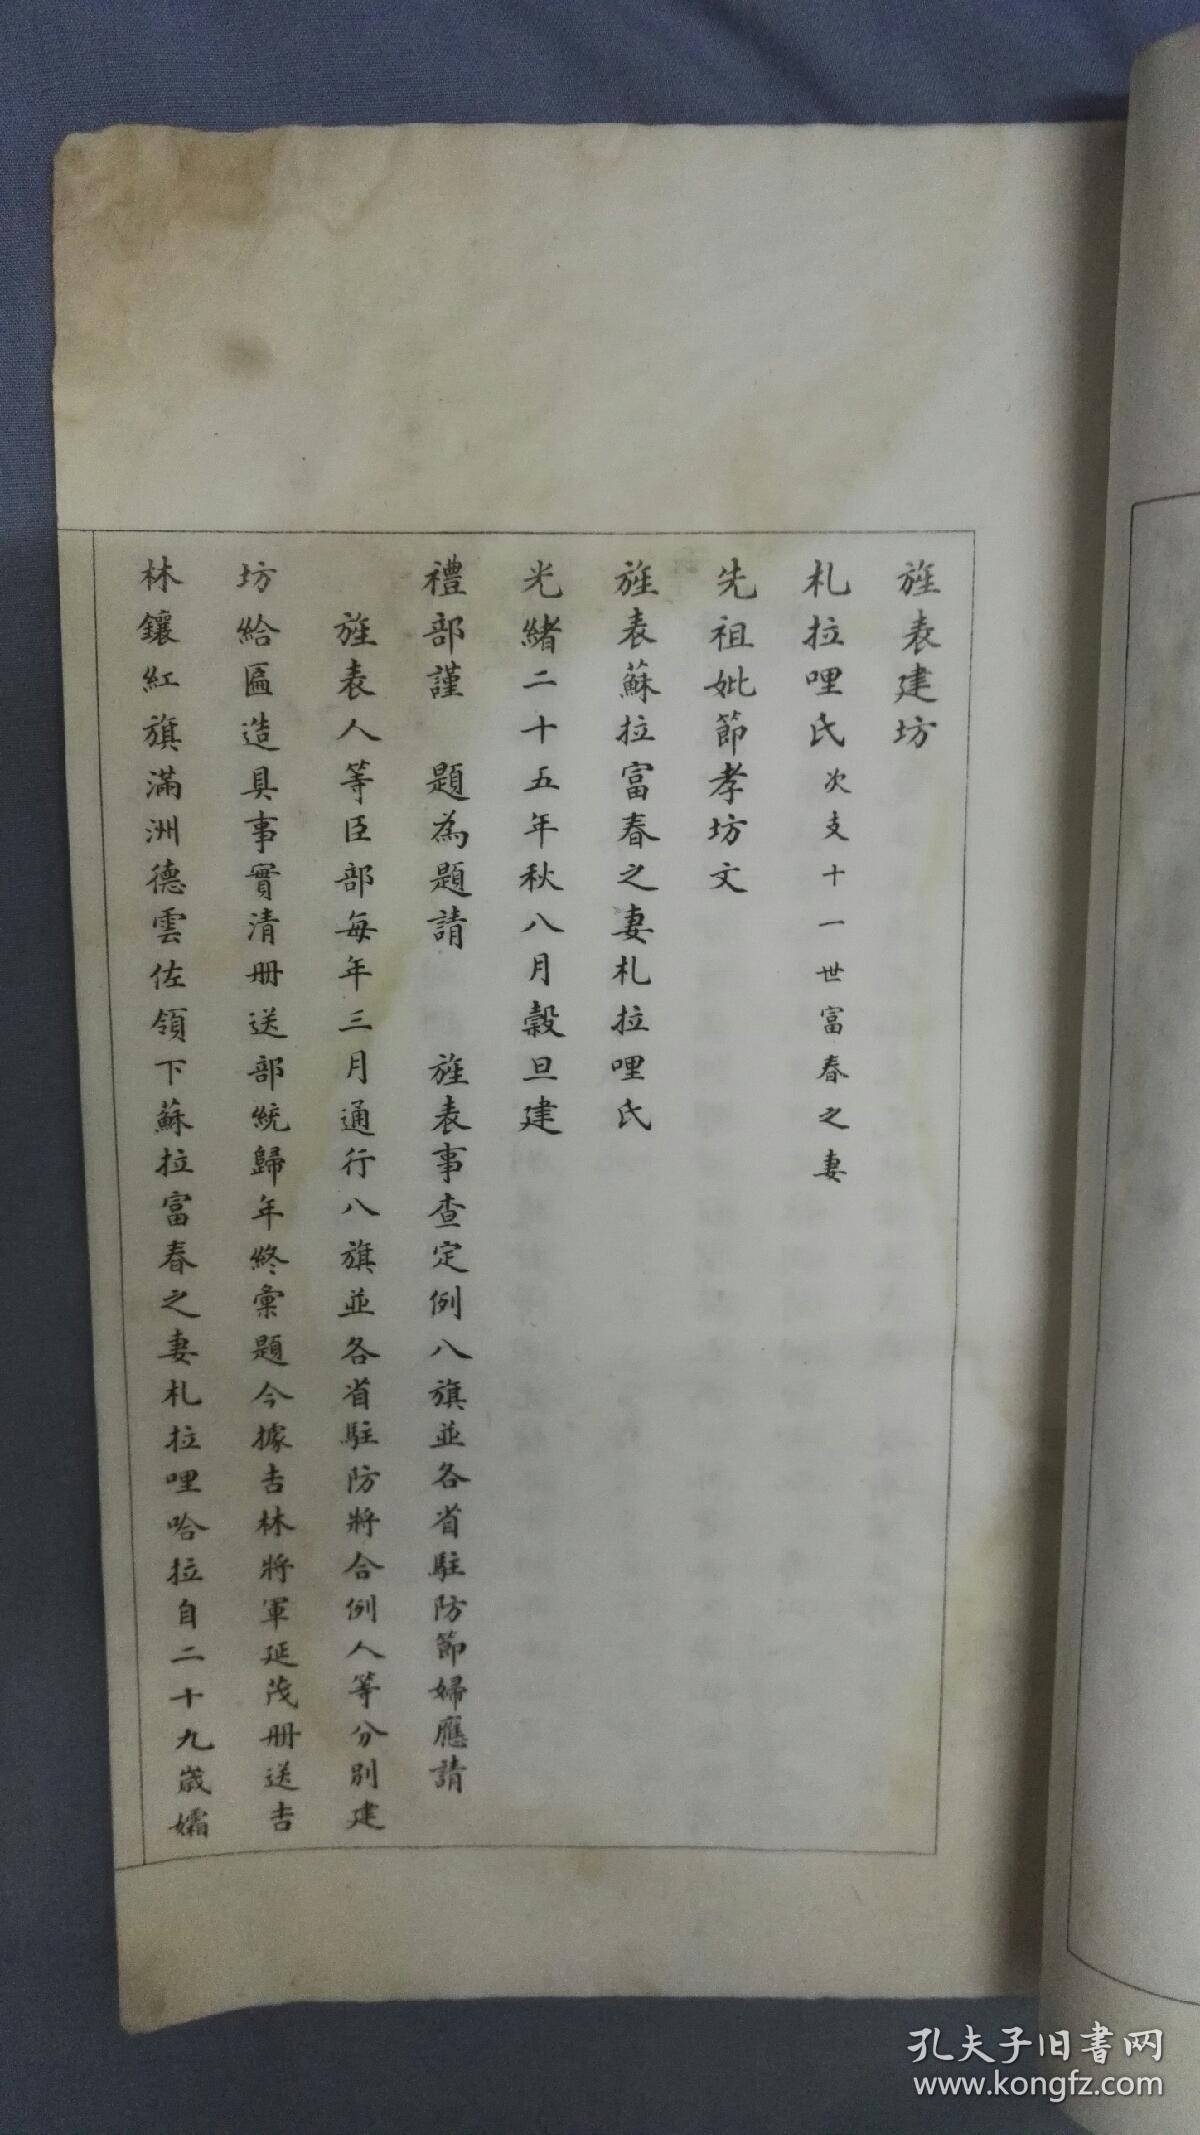 旌表建坊
札拉哩氏次支十一世富春之妻
先祖妣節孝坊文
旌表蘇拉富春之妻札拉哩氏
光緒二十五年秋八月穀旦建
禮部謹 題為題請 旌表事查定例八旗並各省駐防節婦應請
旌表人等臣部每年三月通行八旗並各省駐防將合例人等分別建
坊給匾造具事實清册送部統歸年終彙題今據吉林將軍延茂册送吉
林鑲紅旗滿洲德雲佐領下蘇拉富春之妻札拉哩哈拉自二十九歲孀
孔夫子旧书网
www.kongfz.com